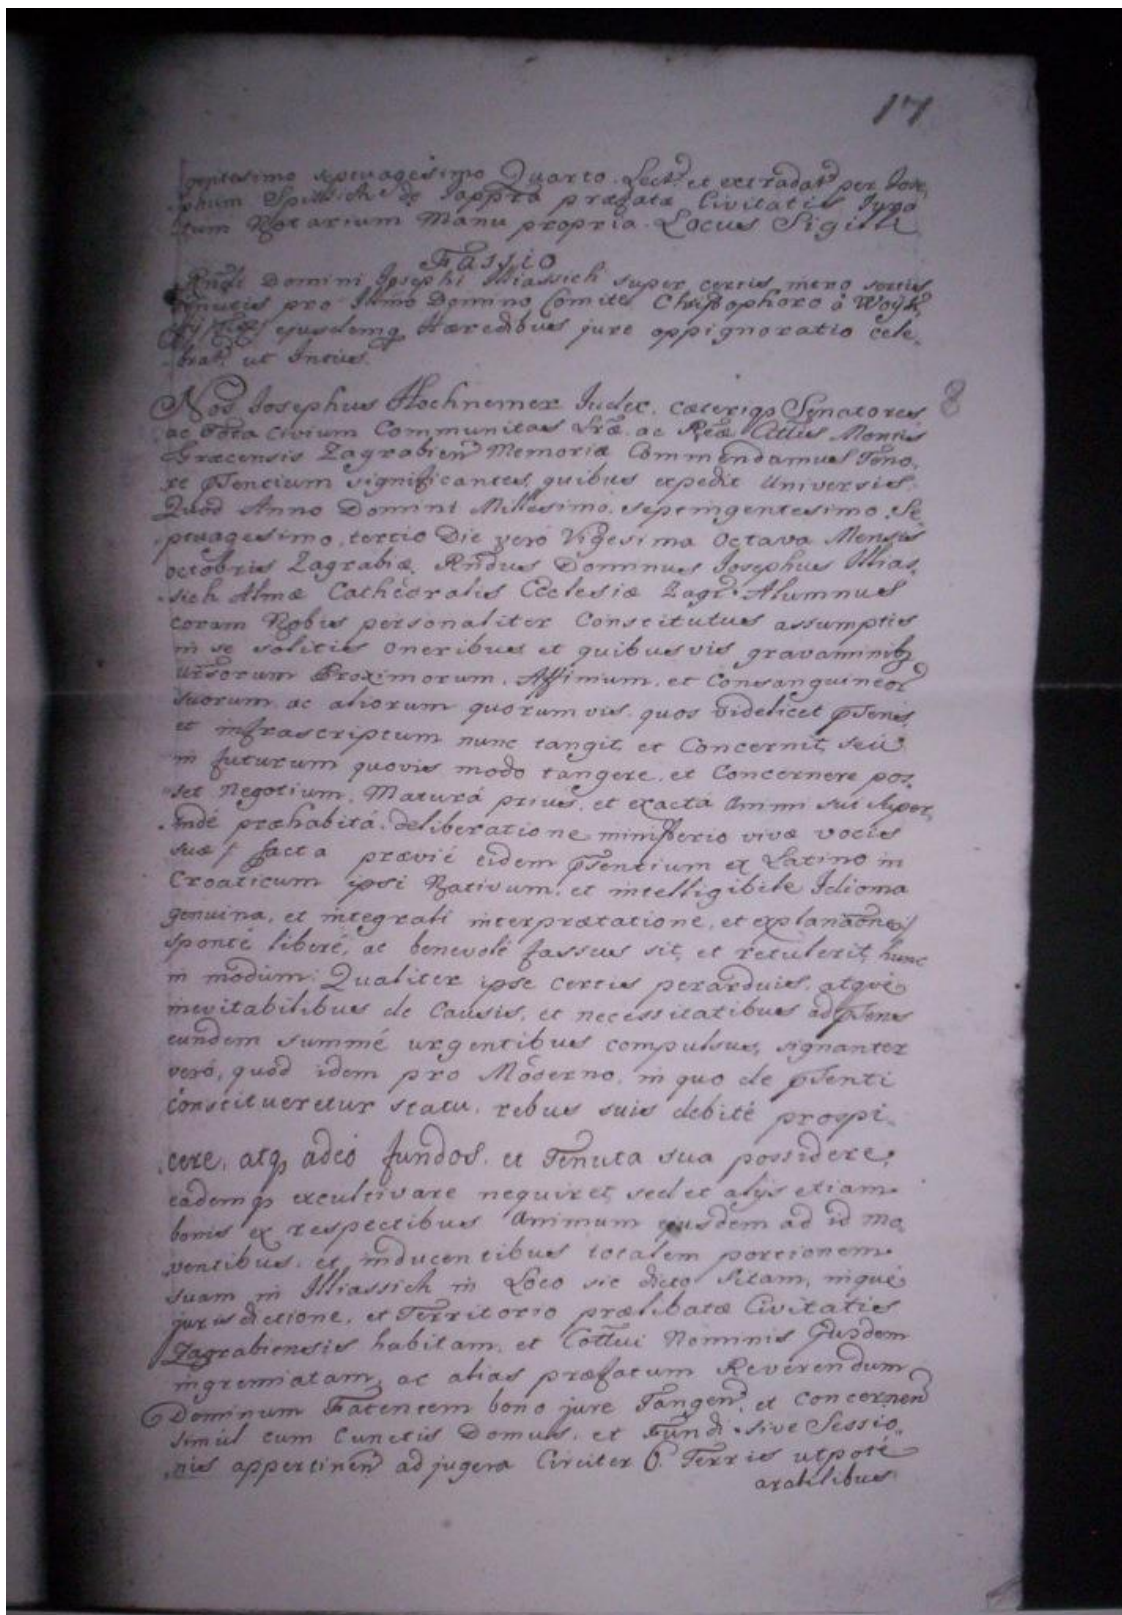 17
gentesimo septuagesimo Quarto. Lect. et extradat. per Jose,
phum Spissich de Jappra præfatæ Civitatis Jura
tum Notarium Manu propria. Locus Sigilli
Fassio
Rndi Domini Josephi Illiassich super certis intro sertis
tenutis pro Illmo Domino Comite Christophoro à
ejusdemq Hæredibus jure oppignoratio cele,
brat. ut Intus.
Nos Josephus Hochnemer Judex, cæteriqs Senatores 8
ac Tota Civium Communitas Lræ ac Reæ Cittis Montis
Græcensis Zagrabien Memoriæ Commendamus Teno,
re Pntium significantes, quibus expedit Universis.
Quod Anno Domini Millesimo, septingentesimo, Se,
ptuagesimo, tertio Die veró Vigesima Octava Mensis
octobris Zagrabiæ, Rndus Dominus Josephus Illias,
sich Almæ Cathedralis Ecclesiæ Zagr. Alumnus
coram Nobis personaliter Constitutus assumptis
in se solitis Oneribus et quibusvis gravaminibq
Proximorum, Affinium, et Consanguineor
suorum, ac aliorum quorumvis, quos videlicet Psens
et infrascriptum nunc tangit, et Concernit, seu
in futurum quovis modo tangere, et Concernere pos,
set Negotium, Maturá prius, et exactá Animi sui super,
indé præhabitá, deliberatione ministerio vivæ vocis
suæ / facta prævié eidem Psentium ex Latino in
Croaticum ipsi Nativum, et intelligibile Idioma
genuina, et integrali interprætatione, et explanaone /
sponté liberé, ac benevolé fassus sit, et retulerit, hunc
in modum: Qualiter ipse certis perarduis, atqué
inevitabilibus de Causis, et necessitatibus ad Psens
eundem summé urgentibus compulsus, signanter
veró, quód idem pro Moderno, in quo de Psenti
constitueretur statu, rebus suis debité prospi,
cere, atq adeó fundos, et Tenuta sua possidere,
eademqs excultivare nequiret, sed et alijs etiam
bonis ex respectibus Animum ejusdem ad id mo,
ventibus, et inducentibus totalem portionem
suam in Illiassich in Loco sic dicto sitam, inqué
jurisdictione, et Territorio prælibatæ Civitatis
Zagrabiensis habitam, et Cottui Nominis Ejusdem
ingremiatam, ac alias præfatum Reverendum
Dominum Fatentem bono jure Tangen, et concernen
simul cum Cunctis Domus, et Fundi sive Sessio,
nis appertinen ad jugera Circiter 6. Terris utpoté
arabilibus